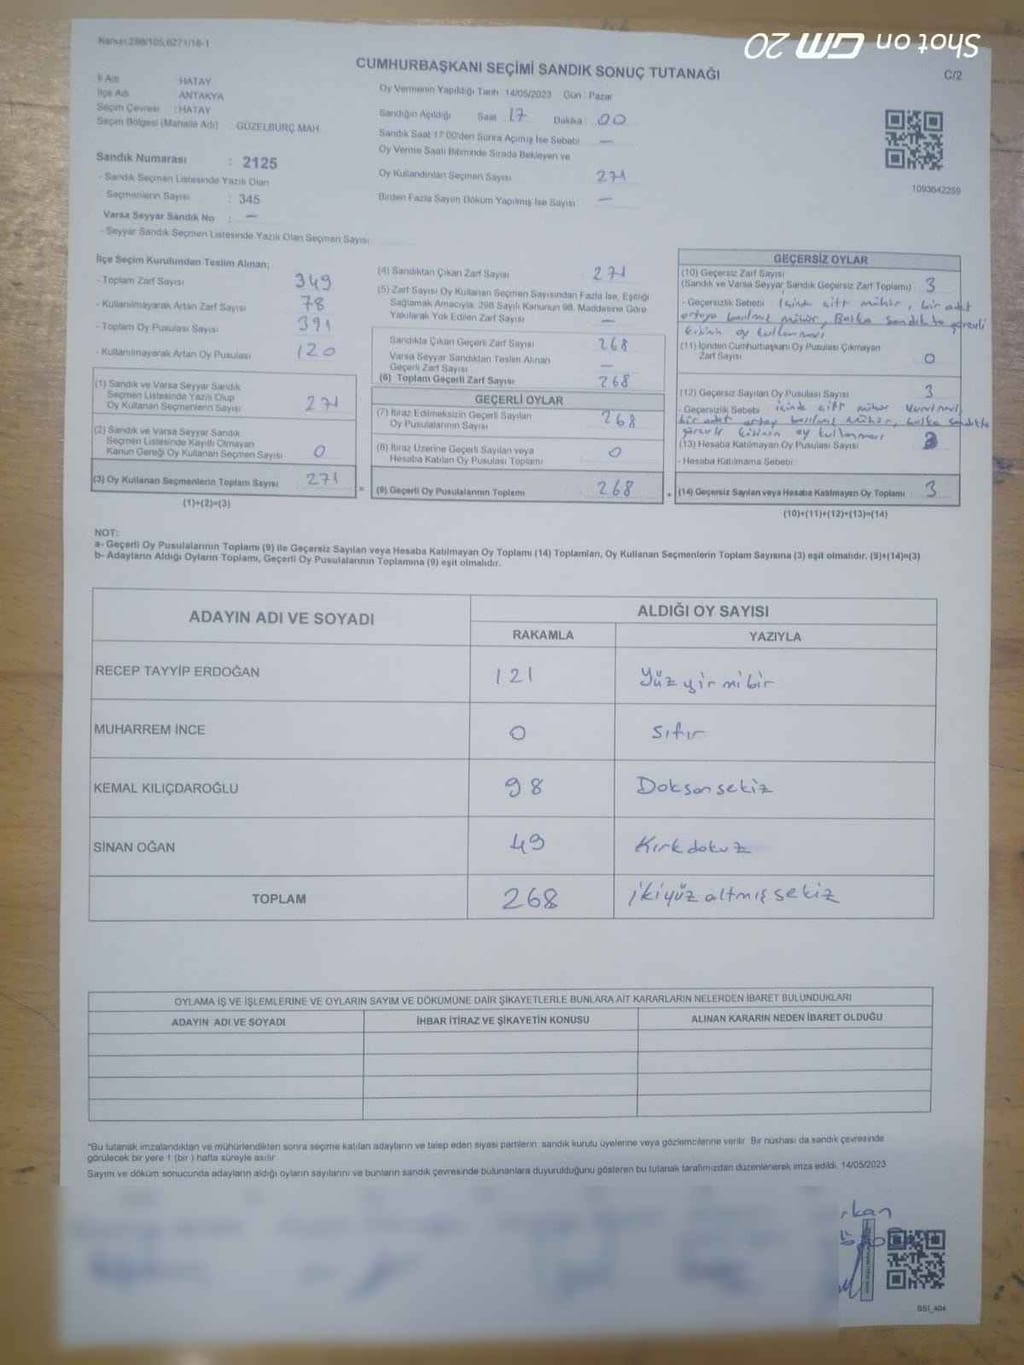 Shot on GM 20
Kanun:298/105,6271/16-1
CUMHURBAŞKANI SEÇİMİ SANDIK SONUÇ TUTANAĞI
C/2
İl Adı : HATAY
İlçe Adı : ANTAKYA
Seçim Çevresi : HATAY
Seçim Bölgesi (Mahalle Adı) : GÜZELBURÇ MAH.
Sandık Numarası : 2125
- Sandık Seçmen Listesinde Yazılı Olan
Seçmenlerin Sayısı : 345
Varsa Seyyar Sandık No : —
- Seyyar Sandık Seçmen Listesinde Yazılı Olan Seçmen Sayısı
Oy Vermenin Yapıldığı Tarih : 14/05/2023 Gün : Pazar
Sandığın Açıldığı Saat : 17 Dakika : 00
Sandık Saat 17:00'den Sonra Açılmış İse Sebebi —
Oy Verme Saati Bitiminde Sırada Bekleyen ve
Oy Kullandırılan Seçmen Sayısı 271
Birden Fazla Sayım Döküm Yapılmış İse Sayısı —
1093642259
İlçe Seçim Kurulundan Teslim Alınan;
- Toplam Zarf Sayısı 349
- Kullanılmayarak Artan Zarf Sayısı 78
- Toplam Oy Pusulası Sayısı 391
- Kullanılmayarak Artan Oy Pusulası 120
(1) Sandık ve Varsa Seyyar Sandık
Seçmen Listesinde Yazılı Olup
Oy Kullanan Seçmenlerin Sayısı 271
(2) Sandık ve Varsa Seyyar Sandık
Seçmen Listesinde Kayıtlı Olmayan
Kanun Gereği Oy Kullanan Seçmen Sayısı 0
(3) Oy Kullanan Seçmenlerin Toplam Sayısı 271
(1)+(2)=(3)
(4) Sandıktan Çıkan Zarf Sayısı 271
(5) Zarf Sayısı Oy Kullanan Seçmen Sayısından Fazla İse, Eşitliği
Sağlamak Amacıyla, 298 Sayılı Kanunun 98. Maddesine Göre
Yakılarak Yok Edilen Zarf Sayısı —
Sandıkta Çıkan Geçerli Zarf Sayısı 268
Varsa Seyyar Sandıktan Teslim Alınan
Geçerli Zarf Sayısı —
(6) Toplam Geçerli Zarf Sayısı 268
GEÇERLİ OYLAR
(7) İtiraz Edilmeksizin Geçerli Sayılan
Oy Pusulasının Sayısı 268
(8) İtiraz Üzerine Geçerli Sayılan veya
Hesaba Katılan Oy Pusulası Toplamı 0
(9) Geçerli Oy Pusulalarının Toplamı 268
GEÇERSİZ OYLAR
(10) Geçersiz Zarf Sayısı
(Sandık ve Varsa Seyyar Sandık Geçersiz Zarf Toplamı) 3
- Geçersizlik Sebebi İçinde çift mühür, bir adet
ortaya basılmış mühür, Başka sandıkta görevli
kişinin oy kullanması
(11) İçinden Cumhurbaşkanı Oy Pusulası Çıkmayan
Zarf Sayısı 0
(12) Geçersiz Sayılan Oy Pusulası Sayısı 3
- Geçersizlik Sebebi içinde çift mühür
bir adet ortaya basılmış mühür, başka sandıkta
görevli kişinin oy kullanması
(13) Hesaba Katılmayan Oy Pusulası Sayısı
- Hesaba Katılmama Sebebi
(14) Geçersiz Sayılan veya Hesaba Katılmayan Oy Toplamı 3
(10)+(11)+(12)+(13)=(14)
NOT:
a- Geçerli Oy Pusulalarının Toplamı (9) ile Geçersiz Sayılan veya Hesaba Katılmayan Oy Toplamı (14) Toplamları, Oy Kullanan Seçmenlerin Toplam Sayısına (3) eşit olmalıdır. (9)+(14)=(3)
b- Adayların Aldığı Oyların Toplamı, Geçerli Oy Pusulalarının Toplamına (9) eşit olmalıdır.
ADAYIN ADI VE SOYADI
ALDIĞI OY SAYISI
RAKAMLA YAZIYLA
RECEP TAYYİP ERDOĞAN 121 Yüz yirmi bir
MUHARREM İNCE 0 sıfır
KEMAL KILIÇDAROĞLU 98 Doksan sekiz
SİNAN OĞAN 49 Kırk dokuz
TOPLAM 268 ikiyüz altmış sekiz
OYLAMA İŞ VE İŞLEMLERİNE VE OYLARIN SAYIM VE DÖKÜMÜNE DAİR ŞİKAYETLERLE BUNLARA AİT KARARLARIN NELERDEN İBARET BULUNDUKLARI
ADAYIN ADI VE SOYADI İHBAR İTİRAZ VE ŞİKAYETİN KONUSU ALINAN KARARIN NEDEN İBARET OLDUĞU
*Bu tutanak imzalandıktan ve mühürlendikten sonra seçime katılan adayların ve talep eden siyasi partilerin, sandık kurulu üyelerine veya gözlemcilerine verilir. Bir nüshası da sandık çevresinde
görülecek bir yere 1 (bir ) hafta süreyle asılır.
Sayım ve döküm sonucunda adayların aldığı oyların sayılarını ve bunların sandık çevresinde bulunanlara duyurulduğunu gösteren bu tutanak tarafımızdan düzenlenerek imza edildi. 14/05/2023
rkan